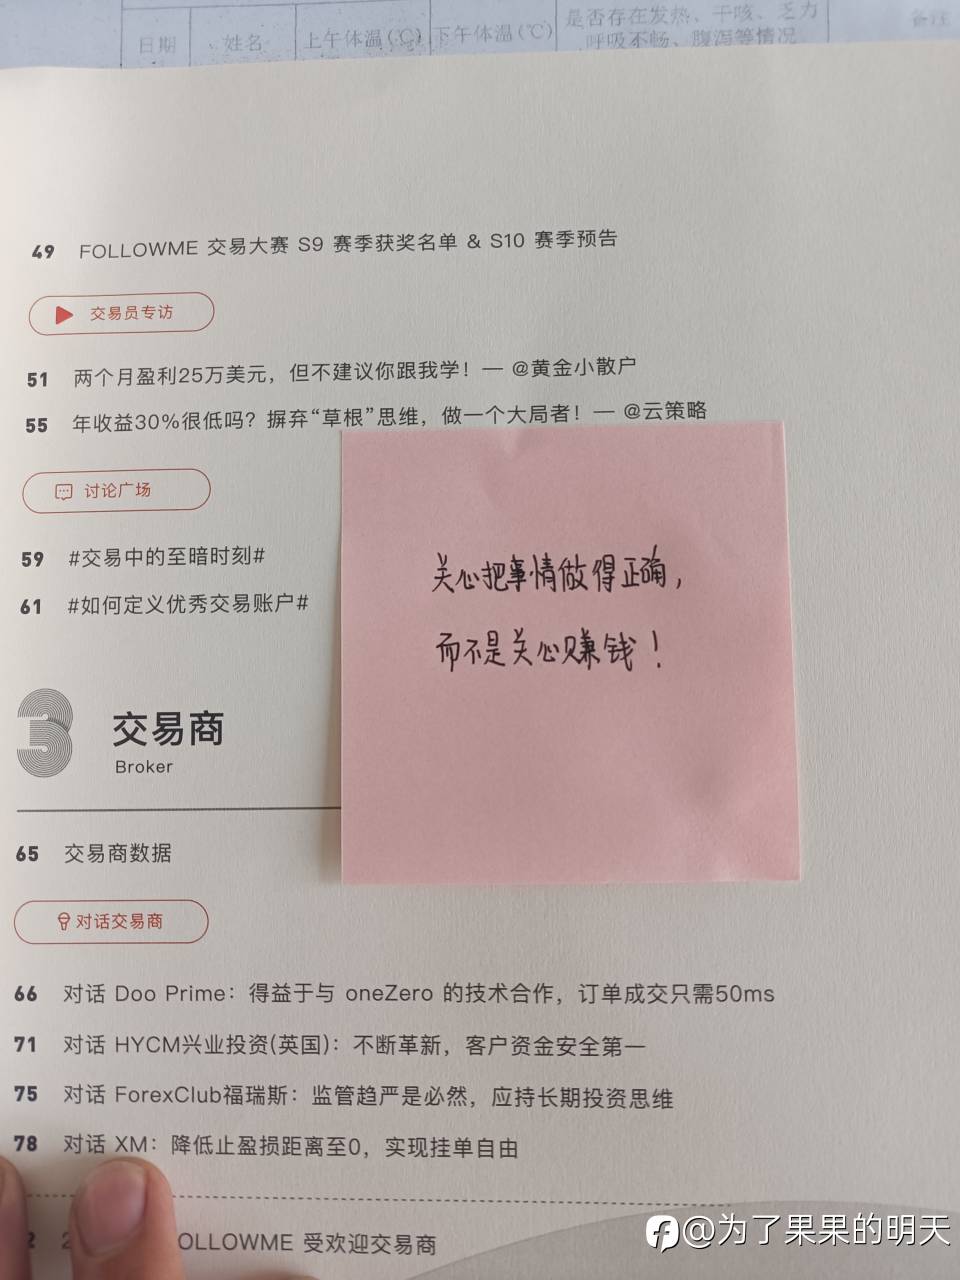 日期 姓名 上午体温(℃) 下午体温(℃) 是否存在发热、干咳、乏力 备注
呼吸不畅、腹泻等情况
49 FOLLOWME 交易大赛 S9 赛季获奖名单 & S10 赛季预告
交易员专访
51 两个月盈利25万美元，但不建议你跟我学！— @黄金小散户
55 年收益30%很低吗？摒弃“草根”思维，做一个大局者！— @云策略
讨论广场
59 #交易中的至暗时刻#
61 #如何定义优秀交易账户#
关心把事情做得正确，
而不是关心赚钱！
3 交易商
Broker
65 交易商数据
对话交易商
66 对话 Doo Prime：得益于与 oneZero 的技术合作，订单成交只需50ms
71 对话 HYCM兴业投资(英国)：不断革新，客户资金安全第一
75 对话 ForexClub福瑞斯：监管趋严是必然，应持长期投资思维
78 对话 XM：降低止盈损距离至0，实现挂单自由
OLLOWME 受欢迎交易商
@为了果果的明天